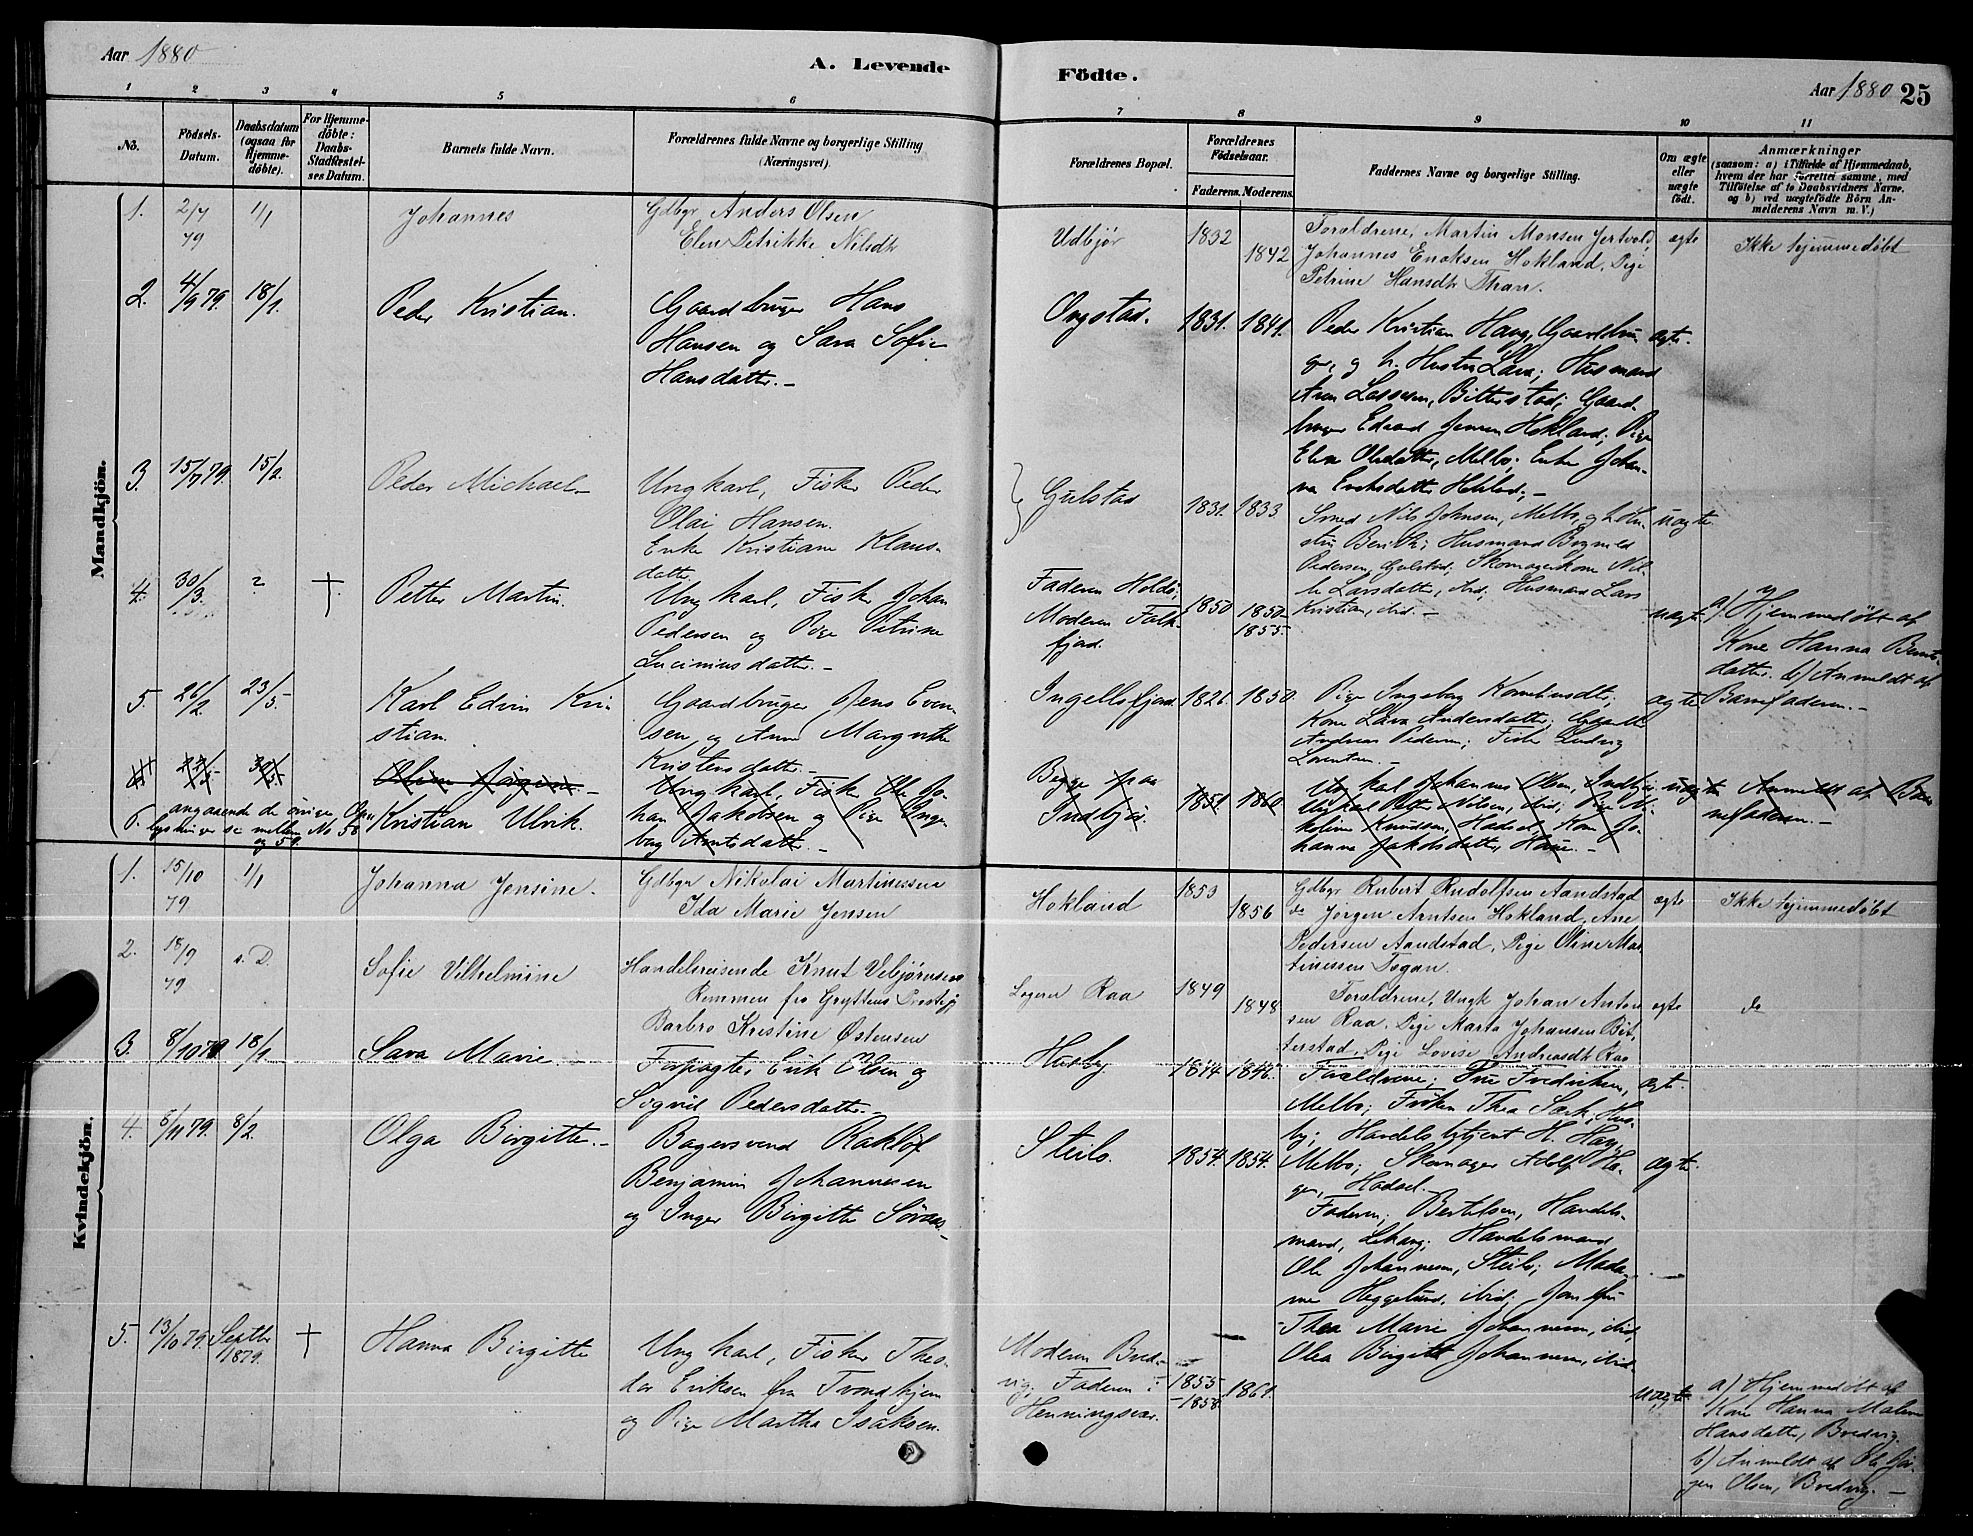 Aar 1880
A. Levende
Födte.
Aar 1880 25
1 2 3 4 5 6 7 8 9 10 11
No.
Födsels-
Datum.
Daabsdatum
(ogsaa for
Hjemme-
döbte).
For Hjemme-
döbte:
Daabs-
Stadfæstel-
ses Datum.
Barnets fulde Navn.
Forældrenes fulde Navne og borgerlige Stilling
(Næringsvei).
Forældrenes Bopæl.
Forældrenes
Födselsaar.
Faderens. Moderens.
Faddernes Navne og borgerlige Stilling.
Om ægte
eller
uægte
födt.
Anmærkninger
(saasom: a) i Tilfælde af Hjemmedaab,
hvem der har forrettet samme, med
Tilföielse af to Daabsvidners Navne,
og b) ved uægtefödte Börn An-
melderens Navn m. V.)
Mandkjön.
1. 2/7 79 1/1
Johannes
Gdbgr Anders Olsen
Elen Petrikke Nilsdtr
Udbjör
1832
1842
Foroldrene, Martin Monsen Jertvold
Johannes Enoksen Hokland, Pige
Petrine Hansdtr Thran.
ægte
Ikke hjemmedøbt
2. 4/9 79. 18/1.
Peder Kristian.
Gaardbruger Hans
Hansen og Sara Sofie
Hansdatter. –
Ongstad.
1831. 1841.
Peder Kristian Haug, Gaardbru
ger, og h. Hustru Lava; Husmand
Aron Lassesen, Bitterstad; Gaard-
bruger Edvard Jensen Hokland; Pige
Elen Olesdatter, Melbo; Enke Johan-
na Enoksdatter Hokland; –
ægte.
3. 15/7 79. 15/2.
Peder Michael –
Ungkarl, Fisker Peder
Olai Hansen.
Enke Kristiane Klaus-
datter
Gulstad
1831. 1833
Smed Nils Johnsen, Melbo, og h. Hu-
stru Berith; Husmand
Pedersen, Gulstad; Skomagerkone
Larsdatter, ibid, Husmand Lars
Kristian, ibid. –
uægte
4. 30/3. ?
†
Petter Martin.
Ungkarl, Fisker Johan
Pedersen og Pige Petrine
Luciniusdatter. –
Faderen Holdö;
Moderen Falk-
fjord.
1850
1850
1855.
uægte
a) Hjemmedøbt af
Kone Hanna Bents-
datter. b) Anmeldt af
Barnefaderen. –
5. 26/2 23/5.
Karl Edvin Kri-
stian.
Gaardbruger Jens Even-
sen og Anne Margrethe
Kristensdatter –
Ingelsfjord.
1826. 1850.
Pige Ingeborg
Kone Lava Andersdatter;
Andreas Pedersen; Fisker Ludvig
Lorentsen. –
ægte
Jörgen –
Ungkarl, Fisker Ole Jo-
han Jakobsen og Pige Inge-
borg Arntsdatter. –
Begge paa
Indbjör.
1851. 1860
Ungkarl Johannes Olsen, Indbjör
Ungkarl Petter Nilsen, ibid; Pige Ni-
koline Knudsen, Hadsel, Kone Jo-
hanne Jakobsdatter, –
uægte
Anmeldt af Bar
nefaderen. –
6. angaaende de övrige Opl
lysninger se mellem No 58
og 59.
Kristian Ulrik.
Kvindekjön.
1. 15/10 79 1/1
Johanna Jensine.
Gdbgr Nikolai Martinussen
Ida Marie Jensen
Hokland
1853
1856
Gdbgr Rubert Rudolfsen Aandstad
do Jörgen Arntsen Hokland, Ane
Pedersen Aandstad, Pige Oline Mar
tinessen Togan.
ægte
Ikke hjemmedøbt
2. 18/9 79 s. D.
Sofie Vilhelmine
Handelsreisende Knut Vebjörnsen
Remmen fra Gryttens Prestegj
Barbro Kristine Østensen
Logerer Raa
1849
1848
Foroldrene, Ungk Johan Anton
sen Raa. Pige Marta Johansen Bit
terstad. Pige Lovise Andreasdtr Raa
ægte
do
3. 8/10 79 18/1
Sara Marie. –
Forpagter Erik Olsen og
Sigrid Pedersdatter. –
Husby
1844. 1846.
Forældrene; Fru Fredriksen,
Melbo; Fröken Thea Sark, Hus-
by; Handelsbetjent H. Haug
Melbo; Skomager Adolf Ha-
ger, Hadsel. –
ægte.
4. 8/11 79. 8/2.
Olga Birgitte. –
Bagersvend
Benjamin Johannesen
og Inger Birgitte Sörens –
Steilo.
1854. 1854.
Faderen; Bertelsen, Handels-
mand, Lekang; Handelsmand
Ole Johannesen, Steilo; Mada-
me Heggelund, ibid; Jomfru
Thea Marie Johannesen, ibid,
Olea Birgitte Johannesen, ibid
ægte.
5. 13/10 79. Septbr 1879.
†
Hanna Birgitte
Ungkarl, Fisker Theo-
dor Eriksen fra Trondhjem
og Pige Martha Isaksen.
Moderen Bred-
vig, Faderen :
Henningsvær.
1855
–1858
1861.
uægte
a) Hjemmedøbt af
Kone Hanna Malene
Hansdatter, Bredvig.
b) Anmeldt af Ole Jör-
gen Olsen, Bredvig. –